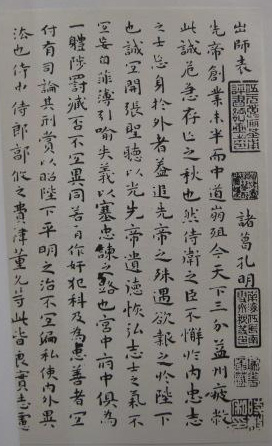 出师表 諸葛孔明
先帝創業未半而中道崩殂今天下三分益州疲敝
此誠危急存亡之秋也然侍衛之臣不懈於内忠志
之士忘身於外者蓋追先帝之殊遇欲報之於陛下
也誠宜開張聖聽以光先帝遺德恢弘志士之氣不
宜妄自菲薄引喻失義以塞忠諫之路也宮中府中俱為
一體陟罰臧否不宜異同若有作奸犯科及為忠善者宜
付有司論其刑賞以昭陛下平明之治不宜偏私使内外異
法也侍中侍郎郭攸之費禕董允等此皆良實志慮